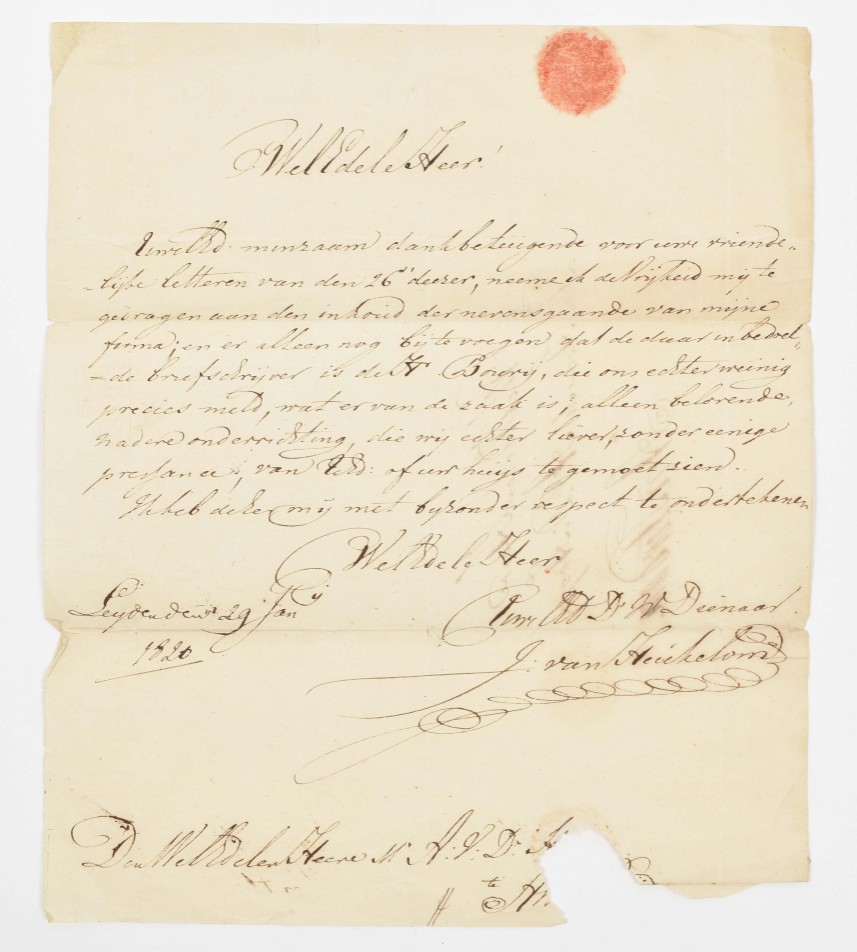 WelEdele Heer!
UweEd. minzaam dankbetuigende voor uwe vriende„
„lijke letteren van den 26' deezer, neeme ik de Vrijheid mij te
gedragen aan den inhoud der nevensgaande van mijne
firma; en er alleen nog bij te voegen dat de daar in bedoel„
„de briefschrijver is de Hr Bowrij, die ons echter weinig
precies meld, wat er van de zaak is; alleen belovende,
nadere onderrichting, die wij echter liever, zonder eenige
, van UEd: of uw huijs te gemoet zien.
Ik heb de Eer mij met byzonder respect te ondertekenen
WelEdele Heer
Leyden den 29 Jany
UweEd Dw Dienaar.
1820
J: van Heukelom
Den WelEdelen Heere Mr A: V: D:
te